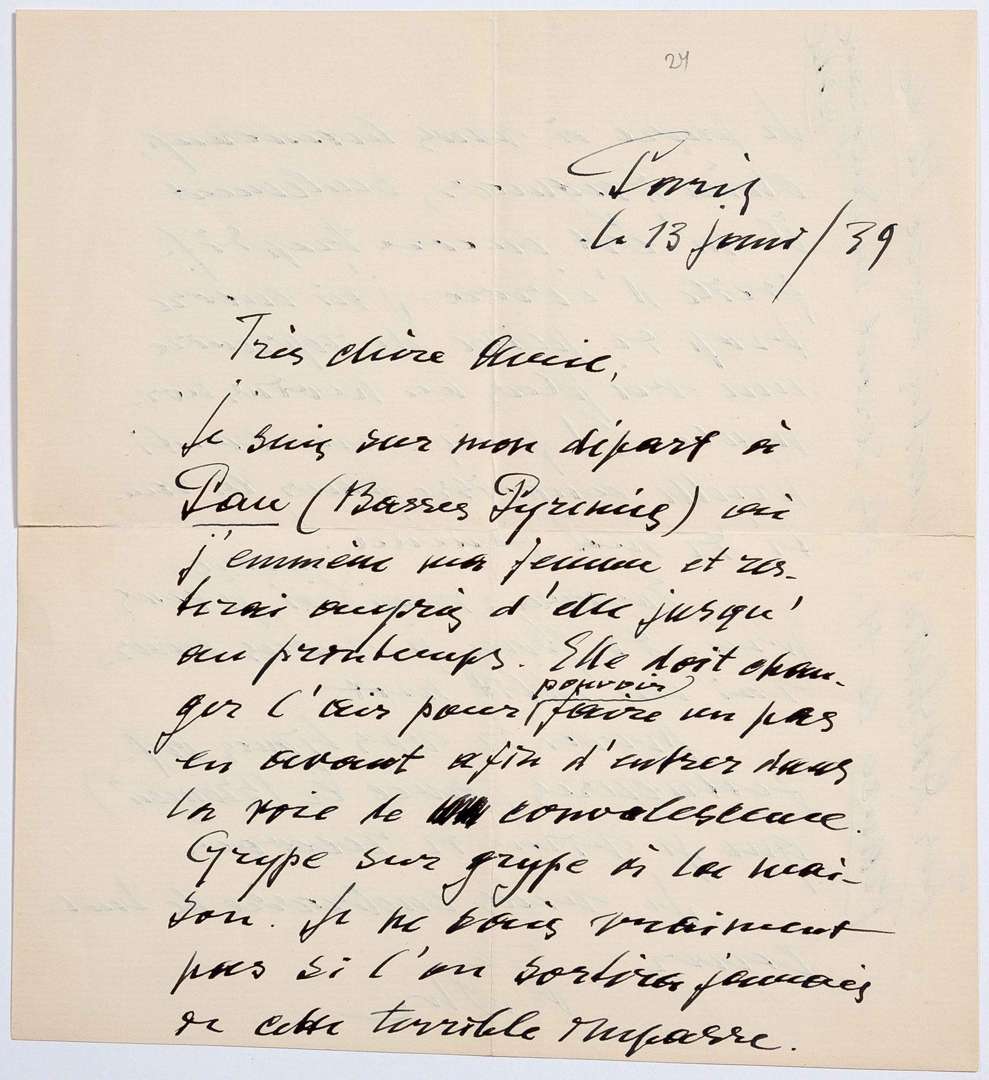 24
Paris
le 13 janv/39
Très chère Amie,
Je suis sur mon départ à
Pau (Basses Pyrénées) où
j'emmène ma femme et res-
terai auprès d'elle jusqu'
au printemps. Elle doit chan-
ger l'air pour pouvoir faire un pas
en avant afin d'entrer dans
la voie de convalescence.
Grippe sur grippe à la mai-
son. Je ne sais vraiment
pas si l'on sortira jamais
de cette terrible impasse.